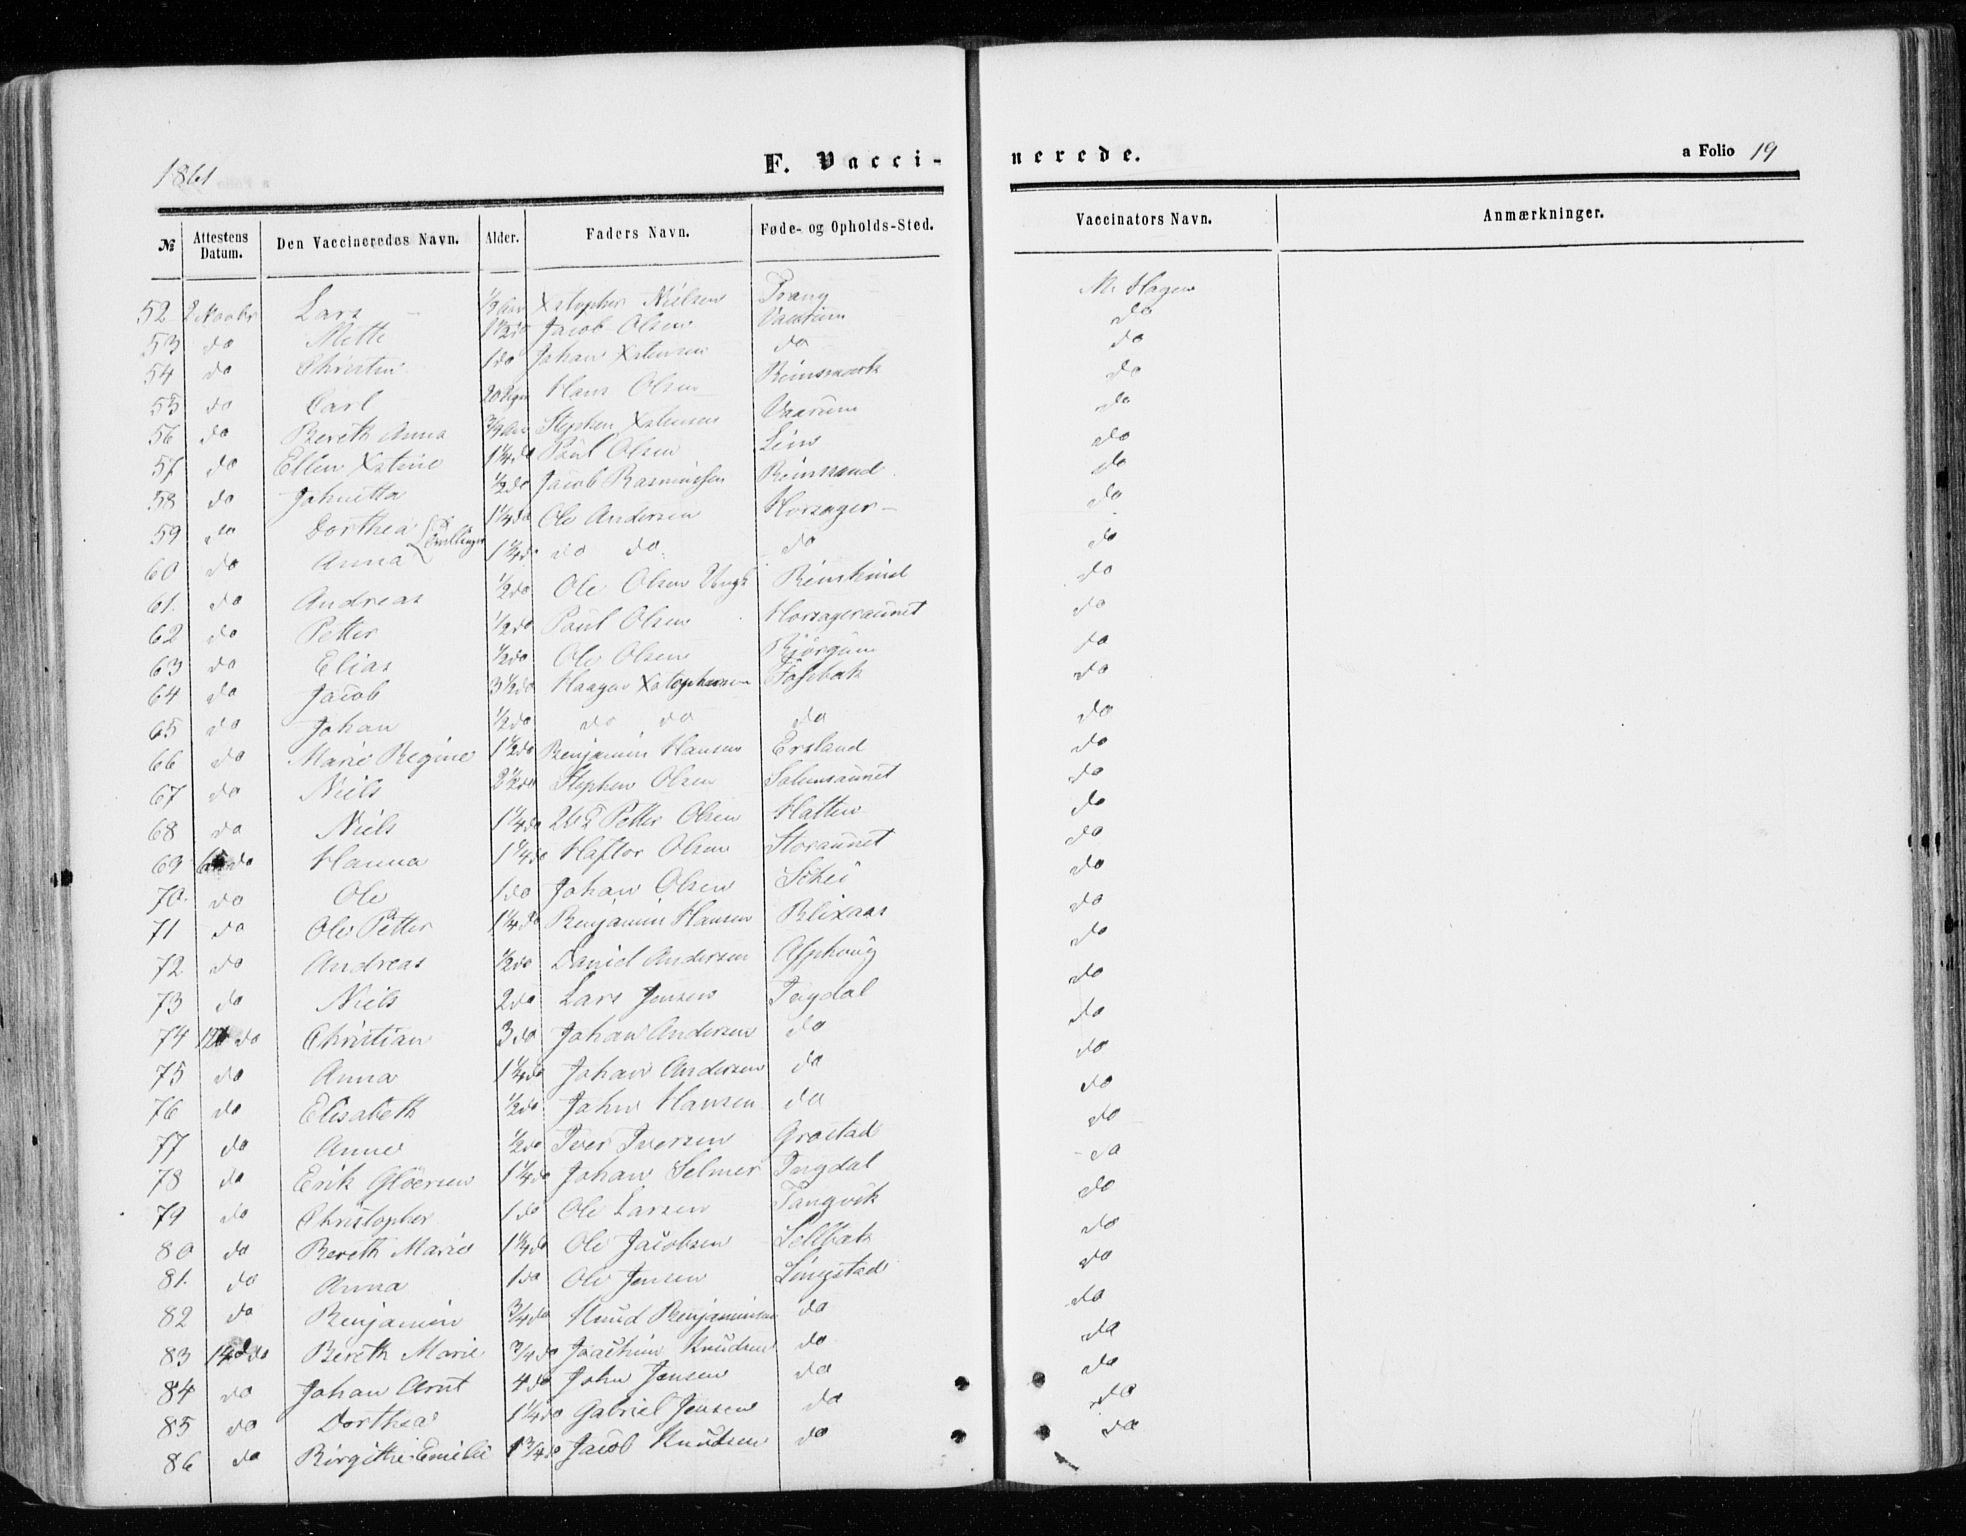 1861 F. Vacci- nerede. a Folio 19
№ Attestens Datum. Den Vaccineredes Navn. Alder. Faders Navn. Føde- og Opholds-Sted. Vaccinators Navn. Anmærkninger.
52 2 Novbr Lars Xstopher Nielsen M. Hagen
53 do Mette 1½ do Jacob Olsen Vaarum do
54 do Christin 1 do Johan Xstensen do do
55 do Carl Hans Olsen do
56 do Bereth Anna ¾ Aar Stephen Xstensen Vaarum do
57 do Ellen Xstine 1¼ do Poul Olsen do
58 do Johnetta ½ do Jacob Rasmussen Reinsund do
59 do Dorthea 1¼ do Ole Andersen Horsager do
60 do Anna Tvillinger 1¼ do do do do do
61. do Andreas ½ do Ole Olsen do
62 do Petter ½ do Poul Olsen Horsageraunet do
63 do Elias ½ do Ole Olsen Bjørgum do
64 do Jacob 3½ do Haagen Xstophersen Fossbak do
65 do Johan ½ do do do do do
66 do Marie Regine 1½ do Benjamin Hansen Ersland do
67 do Niels 2½ do Stephen Olsen do
68 do Niels 1¼ do Petter Olsen Hatten do
69 do Hanna 1¼ do Haftor Olsen Storaunet do
70. do Ole 1 do Johan Olsen Schei do
71 do Ole Petter 1¼ do Benjamin Hansen Blixaas do
72 do Andreas ½ do Daniel Andersen Asphoug do
73 do Niels 2 do Lars Jensen Tugdal do
74 12 do Christian 3 do Johan Andersen do do
75 do Anna 1¼ do Johan Andersen do do
76 do Elisabeth ½ do John Hansen do do
77 do Anne ½ do Iver Iversen Grostad do
78 do Erik Gløersen 1¼ do Johan Selmer Tugdal do
79 do Christopher 1 do Ole Larsen Tangvik do
80 do Bereth Marie 1¼ do Ole Jacobsen Sellbak do
81. do Anna 1 do Ole Jensen Lingstad do
82 do Benjamin ¾ do Knud Benjaminsen do do
83 14 do Bereth Marie ¾ do Joachim Knudsen do do
84 do Johan Arnt 4 do John Jensen do do
85 do Dorthea 1¼ do Gabriel Jensen do do
86 do Birgithe Emilie 1¾ do Jacob Knudsen do do